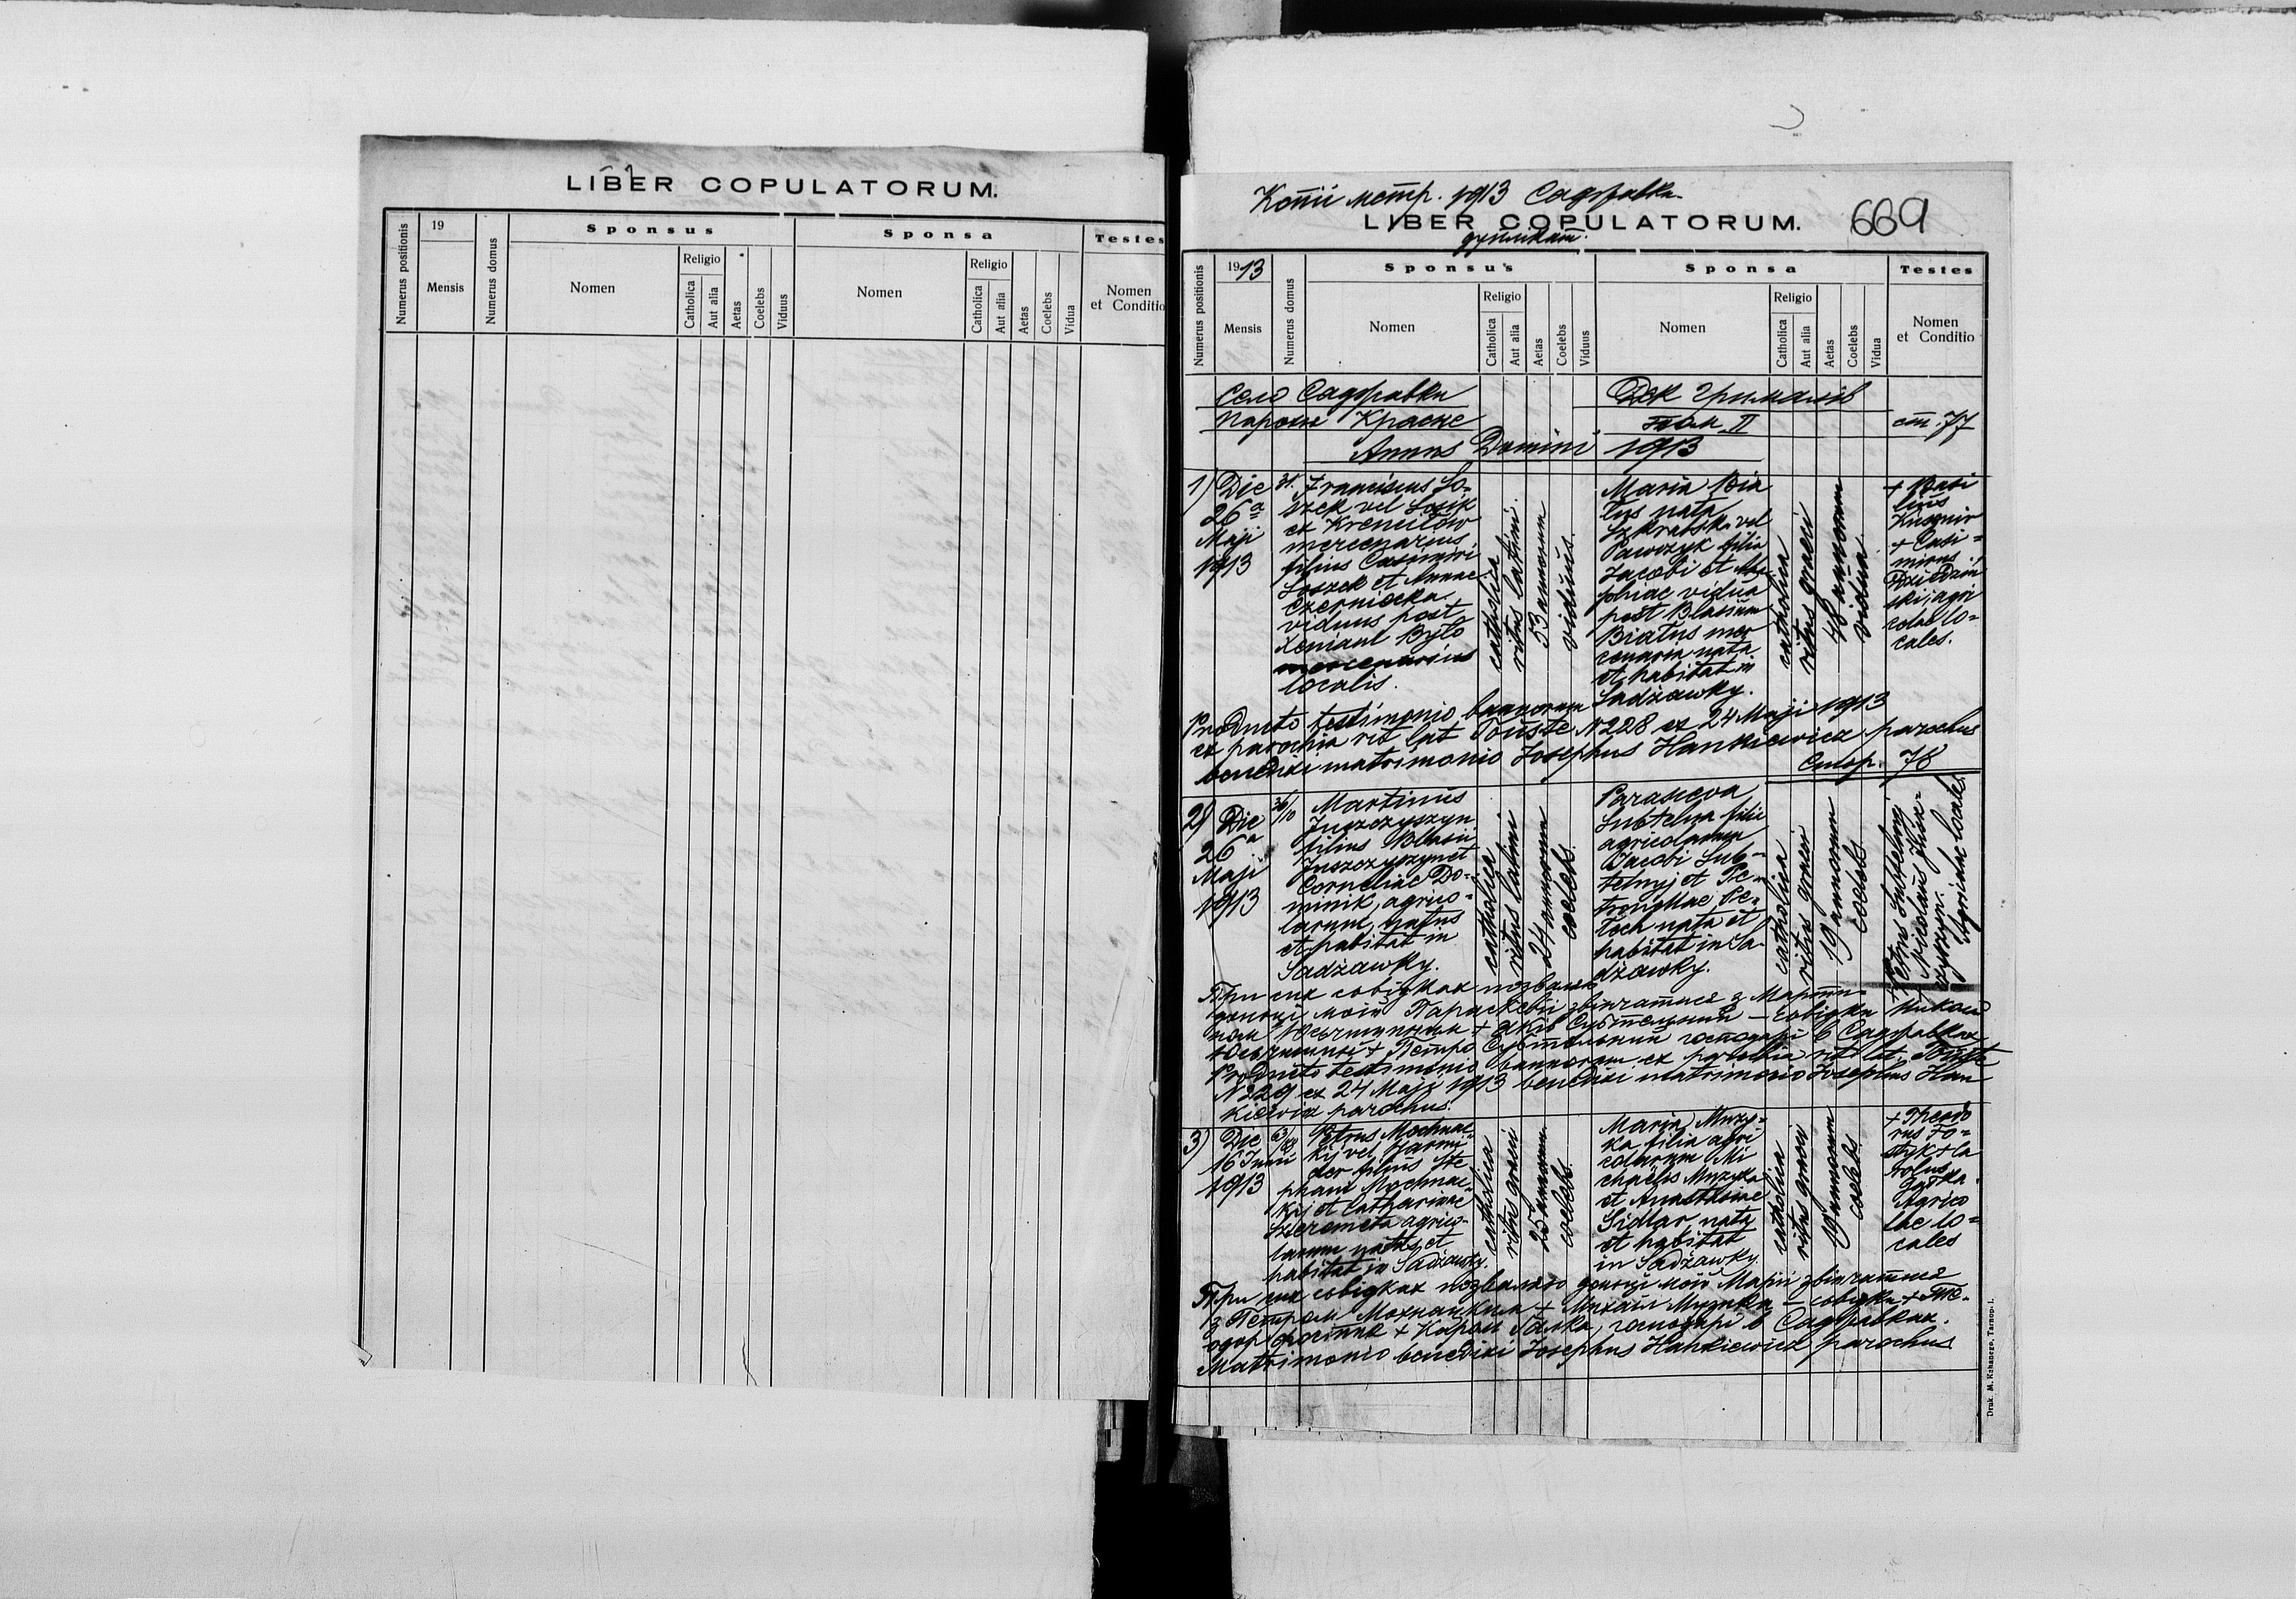 LIBER COPULATORUM.
Numerus positionis
19
Mensis
Numerus domus
Sponsus
Nomen
Religio
Catholica
Aut alia
Aetas
Coelebs
Viduus
Sponsa
Nomen
Religio
Catholica
Aut alia
Aetas
Coelebs
Vidua
Testes
Nomen
et Conditio
Копії метр. 1913 Саджавки
LIBER COPULATORUM. 669
дуплікат.
Numerus positionis
1913
Mensis
Numerus domus
Sponsus
Nomen
Religio
Catholica
Aut alia
Aetas
Coelebs
Viduus
Sponsa
Nomen
Religio
Catholica
Aut alia
Aetas
Coelebs
Vidua
Testes
Nomen
et Conditio
Село Саджавки Дек Грималів
Парохія Красне Том II ст. 77
Annus Domini 1913
1)
Die
26a
Maji
1913
31.
Franciscus Lo-
szek vel Losik
ex Krenciłów
mercenarius
filius Casimiri
Loszek et Annae
Czerniecka
viduus post
Xeniam Było
mercenarius
localis.
catholica
ritus latini.
53 annorum
viduus.
Maria Bia
tus nata
Szkrabski vel
Pawczyk filia
Jacobi et
phiae vidua
post Blasium
Biatus mer
cenaria, nata
et habitat in
Sadżawky.
catholica
ritus graeci
48 annorum
vidua
+ Basi
lius
Kusznir
+ Casi-
mirus
Dziedzin
ski, agri
colae lo-
cales.
Producto testimonio bannorum
ex parochia rit lat Touste N 228 ex 24 Maji 1913
benedixi matrimonio Josephus Hankiewicz parochus
Стор. 78
2)
Die
26a
Maji
1913
36/10
Martinus
Juszczyszyn
filius Blasii
Juszczyszyn et
Corneliae Do-
minik, agrico-
larum, natus
et habitat in
Sadżawky.
catholica
ritus latini
24 annorum
coelebs.
Parasceva
Subtelna filia
agricolarum
Jacobi Sub-
telnyj et Pe-
tronellae Pe-
toch nata et
habitat in Sa-
dżawky.
catholica
ritus graeci
19 annorum
coelebs
+ Petrus Subtelnyj
+ Nicolaus Jusz-
czyszyn.
Agricolae locales
При сих свідках позваляю
доньці моїй Параскевії звінчатися з Марти-
ном Ющишином + Яків Субтельний — Свідки Микола
Ющишин + Петро Субтельний господарі в Саджавках
Producto testimonio bannorum ex parochia rit lat. Touste
N 229 ex 24 Maji 1913 benedixi matrimonio Josephus Han
kiewicz parochus.
3)
Die
16 Junii
1913
Petrus Mochnac
kij vel Harmi
der filius Ste
phani Mochnac
kij et Catharinae
Szeremeta agrico-
larum natus et
habitat in Sadżawky.
catholica
ritus graeci
25 annorum
coelebs.
Maria Muzy-
ka filia agri
colarum Mi
chaëlis Muzyka
et Anastasiae
Sidlar nata
et habitat
in Sadżawky.
catholica
ritus graeci
19 annorum
coelebs
+ Theodo
rus Fo-
styk + Ca
rolus
Gałka
Agrico
lae lo-
cales
При сих свідках позваляю доньці моїй Марії звінчатися
з Петром Мохнацким + Михаїл Музика — свідки + Те-
одор Фостик + Кароль Галка, господарі в Саджавках.
Matrimonio benedixi Josephus Hankiewicz parochus
Druk. M. Kzhanego, Tarnop. I.